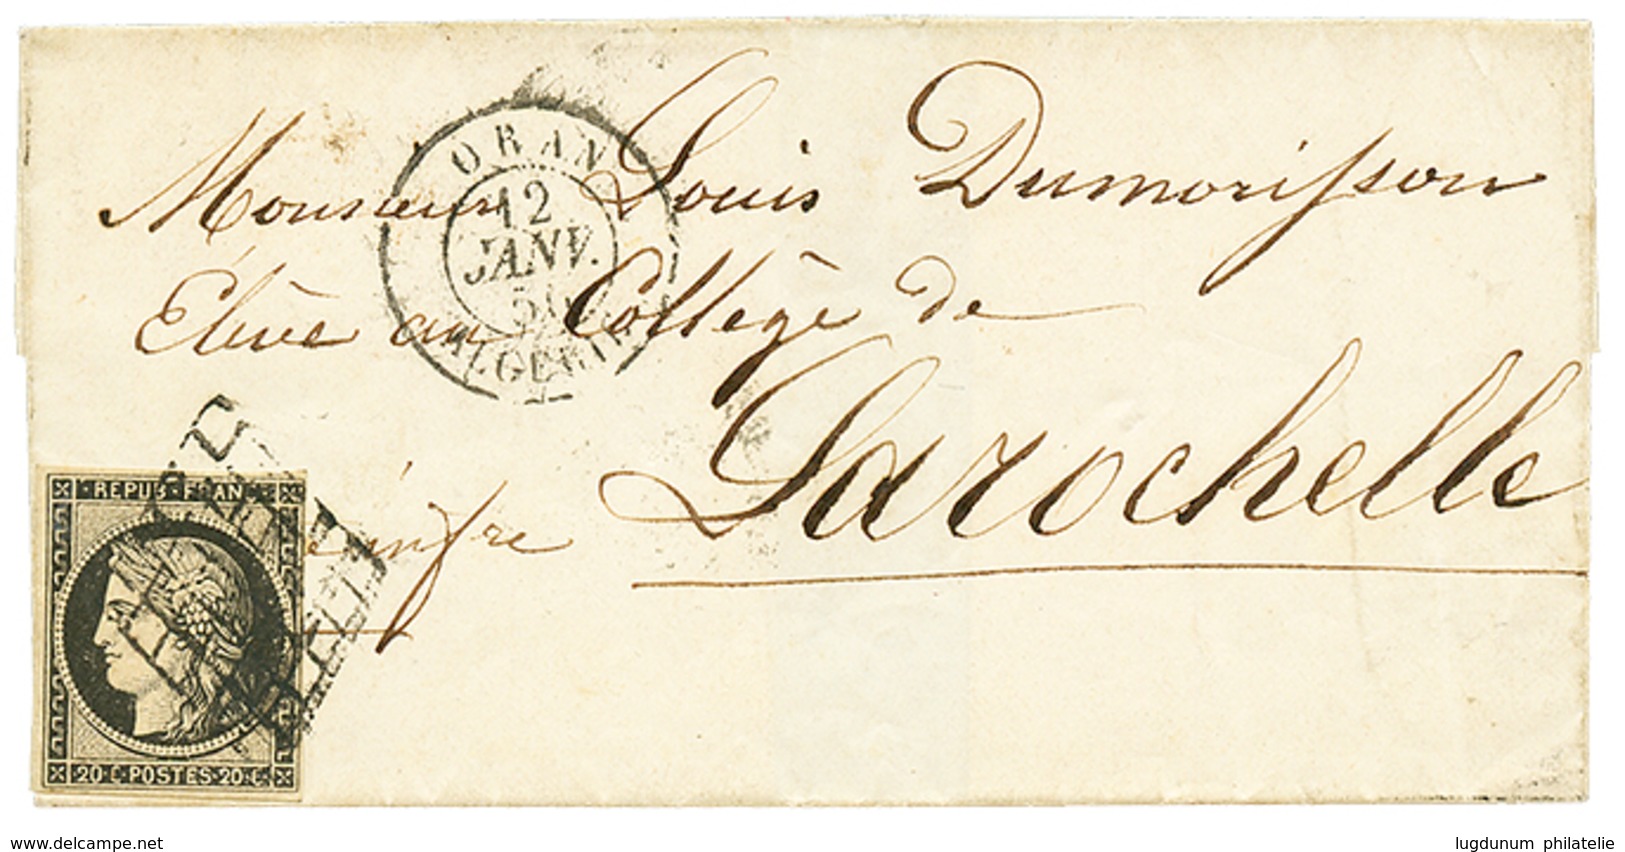 ORAN
12
JANV.
50
ALGERIE
Monsieur Louis Dumorisson
Elève au Collège de
Larochelle
infre
REPUB FRANC
20 C POSTES 20 C
www.delcampe.net
lugdunum philatelie